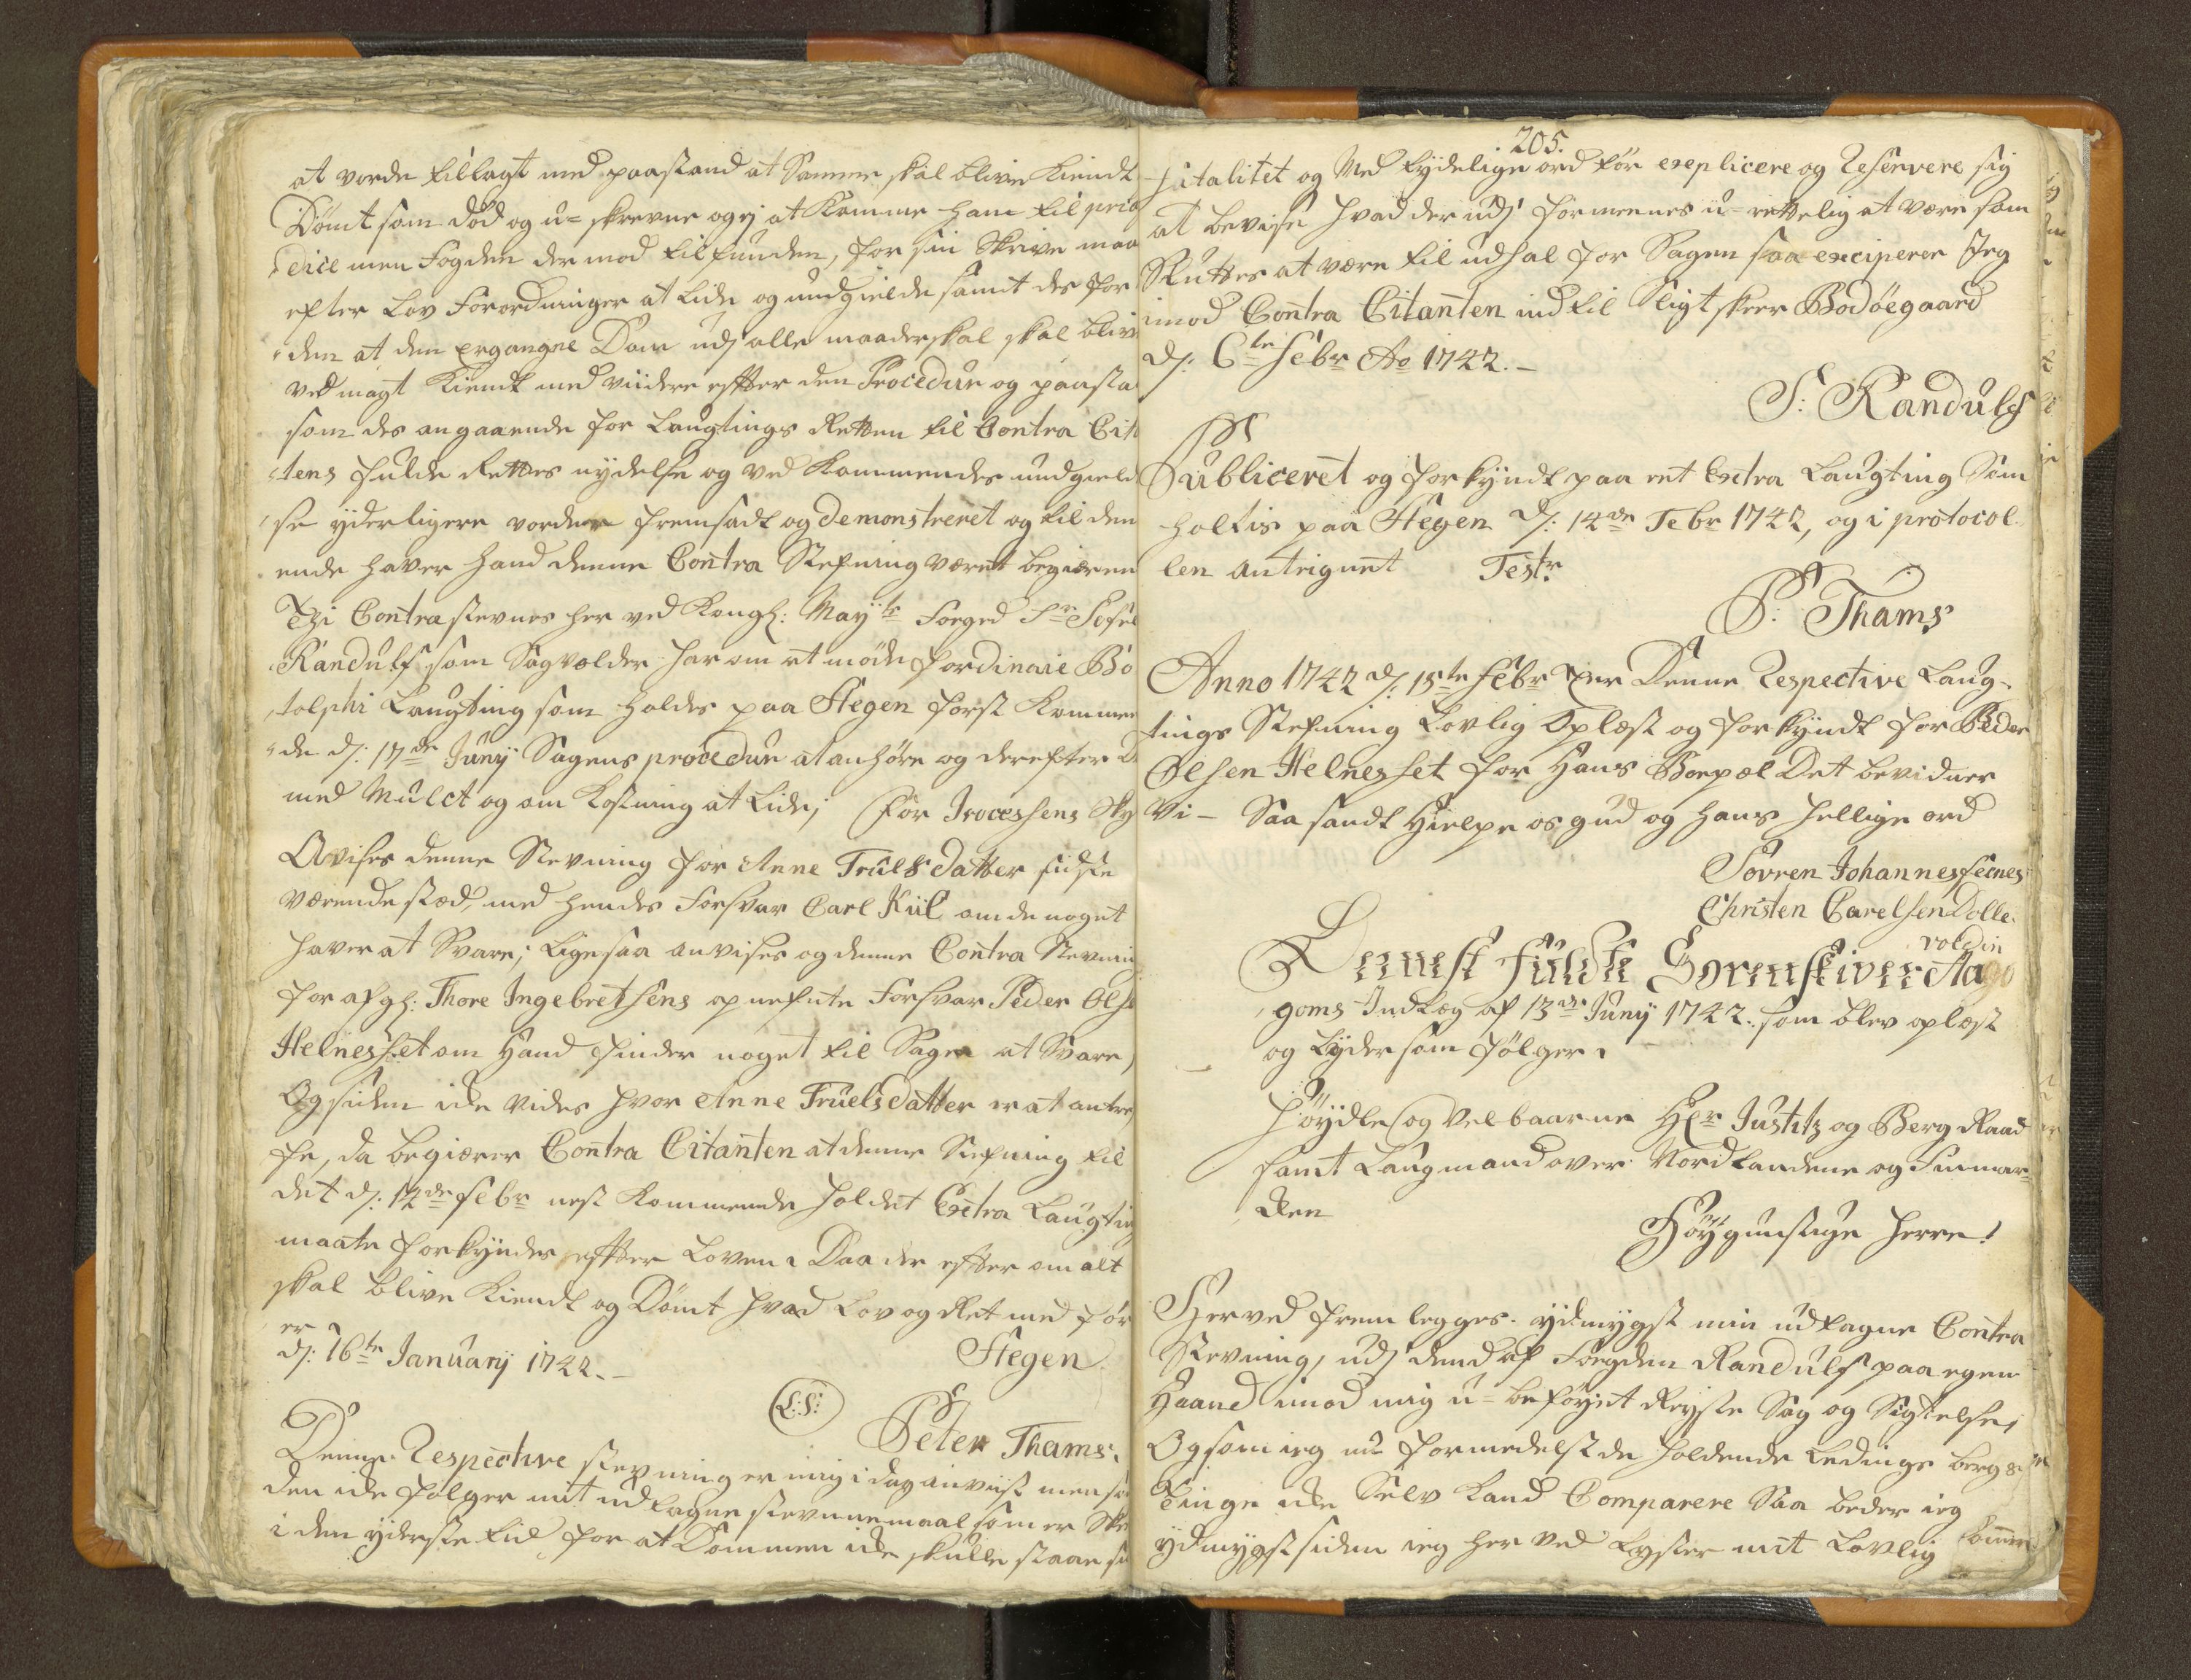 at vorde tillagt med paastand at Samme skal blive kiendt
Dømt som død og u- skreven og ej at komme ham til preju
dice men Fogden der mod tilfunden, for sin Skrive maa
efter Lov Forordninger at Lide og undgielde samt des for
den at den ergangne Dom udj alle maader skal skal blive
ved magt kiendt med viidere effter den Procedur og paasta
som des angaaende for Laugtings Retten til Contra Cit
tens fulde Rettes nydelse og ved kommendes undgield
se yderligere vorder fremsadt og demonstreret og til den
ende haver hand denne Contra Stefning været begiæren
Thi Contrastevnes her ved Kongl: Mayts Foeged Sr
Randulf som Sagvolder har om at møde for dinaie Bo
tolphi Laugting som holdes paa Stegen først kommen
de d: 17de Juny Sagens procedur at anhøre og derefter D
med Mulct og om kostning at Lide; for Processens Sky
Avises denne Stevning for Anne Truls datter sidste
værende stæd, med hendes Forsvar Carl Kiil om de noget
haver at Svare; Ligesaa anvises og denne Contra Stevning
for afgl: Thore Ingebretsens opnefnte Forsvar Peder Olse
Helnesset om Hand finder noget til Sagen at Svare,
Og siden icke vides hvor Anne Truels datter er at antref
fe, da begiærer Contra Citanten at denne Stefning til
det d: 14de Febr nest kommende holdet Extra Laugting
maate forkyndes effter Loven. Daa der effter om alt
skal blive kiendt og Dømt hvad Lov og Ret med før
er Stegen
d: 16te January 1742.
L:S: Peter Thams.
Denne Respective stevning er mig i dag anviist men
den icke følger mit udtagne stevnemaal som er
i den yderste tid for at Dommen icke skulle staae
205.
fatalitet og Med tydelige ord før explicere og Reservere sig
at bevise hvad der udj formenes u- rettelig at være som
Skuttes at være til udhal for Sagen saa exciperer Jeg
imod Contra Citanten indtil Sligt skeer Bodøegaard
d: 6te Febr Ao 1742.
S: Randulf
Publiceret og forkyndt paa ret Extra Laugting Som
holtis paa Stegen d: 14de Febr 1742, og i protocol
len antegnet Testr
P: Thams
Anno 1742 d: 15te Febr er Denne Respective Laug-
tings Stefning Lovlig Oplæst og forkyndt for Peder
Olsen Helnesset for Hans Boepæl Det bevidner
Vi - Saa sandt Hielpe os gud og hans hellige ord
Sørren Johannes
Christen Carelsen Dolle
Dernest fuldte Sorenskriver Aago
voldin
goms Indlæg af 13de Juny 1742. som blev oplæst
og Lyder som følger.
Høyædle og Velbaarne Hr Justitz og Berg Raad
samt Laugmand over Nordlandene og Finmar-
cken
Høygunstige Herre!
Herved fremlegges ydmygst min udtagne Contra
Stevning, udj dend af Foegden Randulf paa egen
Haand imod mig u- beføyet Reyste Sag og Sigtelse,
Og som ieg nu formedelst de holdende Ledings berg
Tinge icke Selv kand Comparere Saa beder ieg
ydmygst siden ieg her ved Lyser mit Lovlig